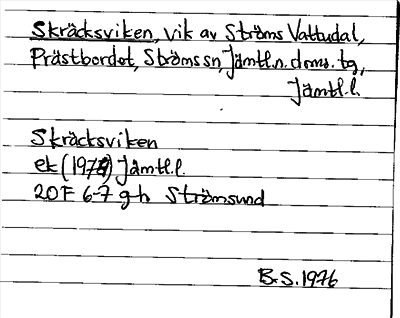 Skräcksviken, vik av Ströms Vattudal,
Prästbordet, Ströms sn, Jämtl. n. doms. tg,
Jämtl. l.
Skräcksviken
ek (1974) Jämtl. l.
20F 6-7 g-h Strömsund
B.S. 1976